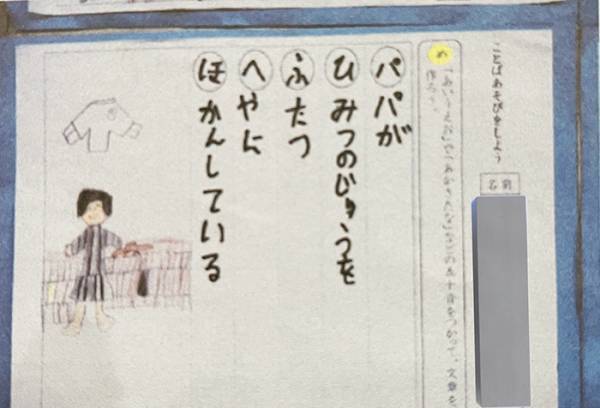 ことばあそびをしよう
名前
め 「あいうえお」や「あかさたな」などの五十音をつかって、文章を
作ろう。
パパが
ひみつのじゅうを
ふたつ
へやに
ほかんしている